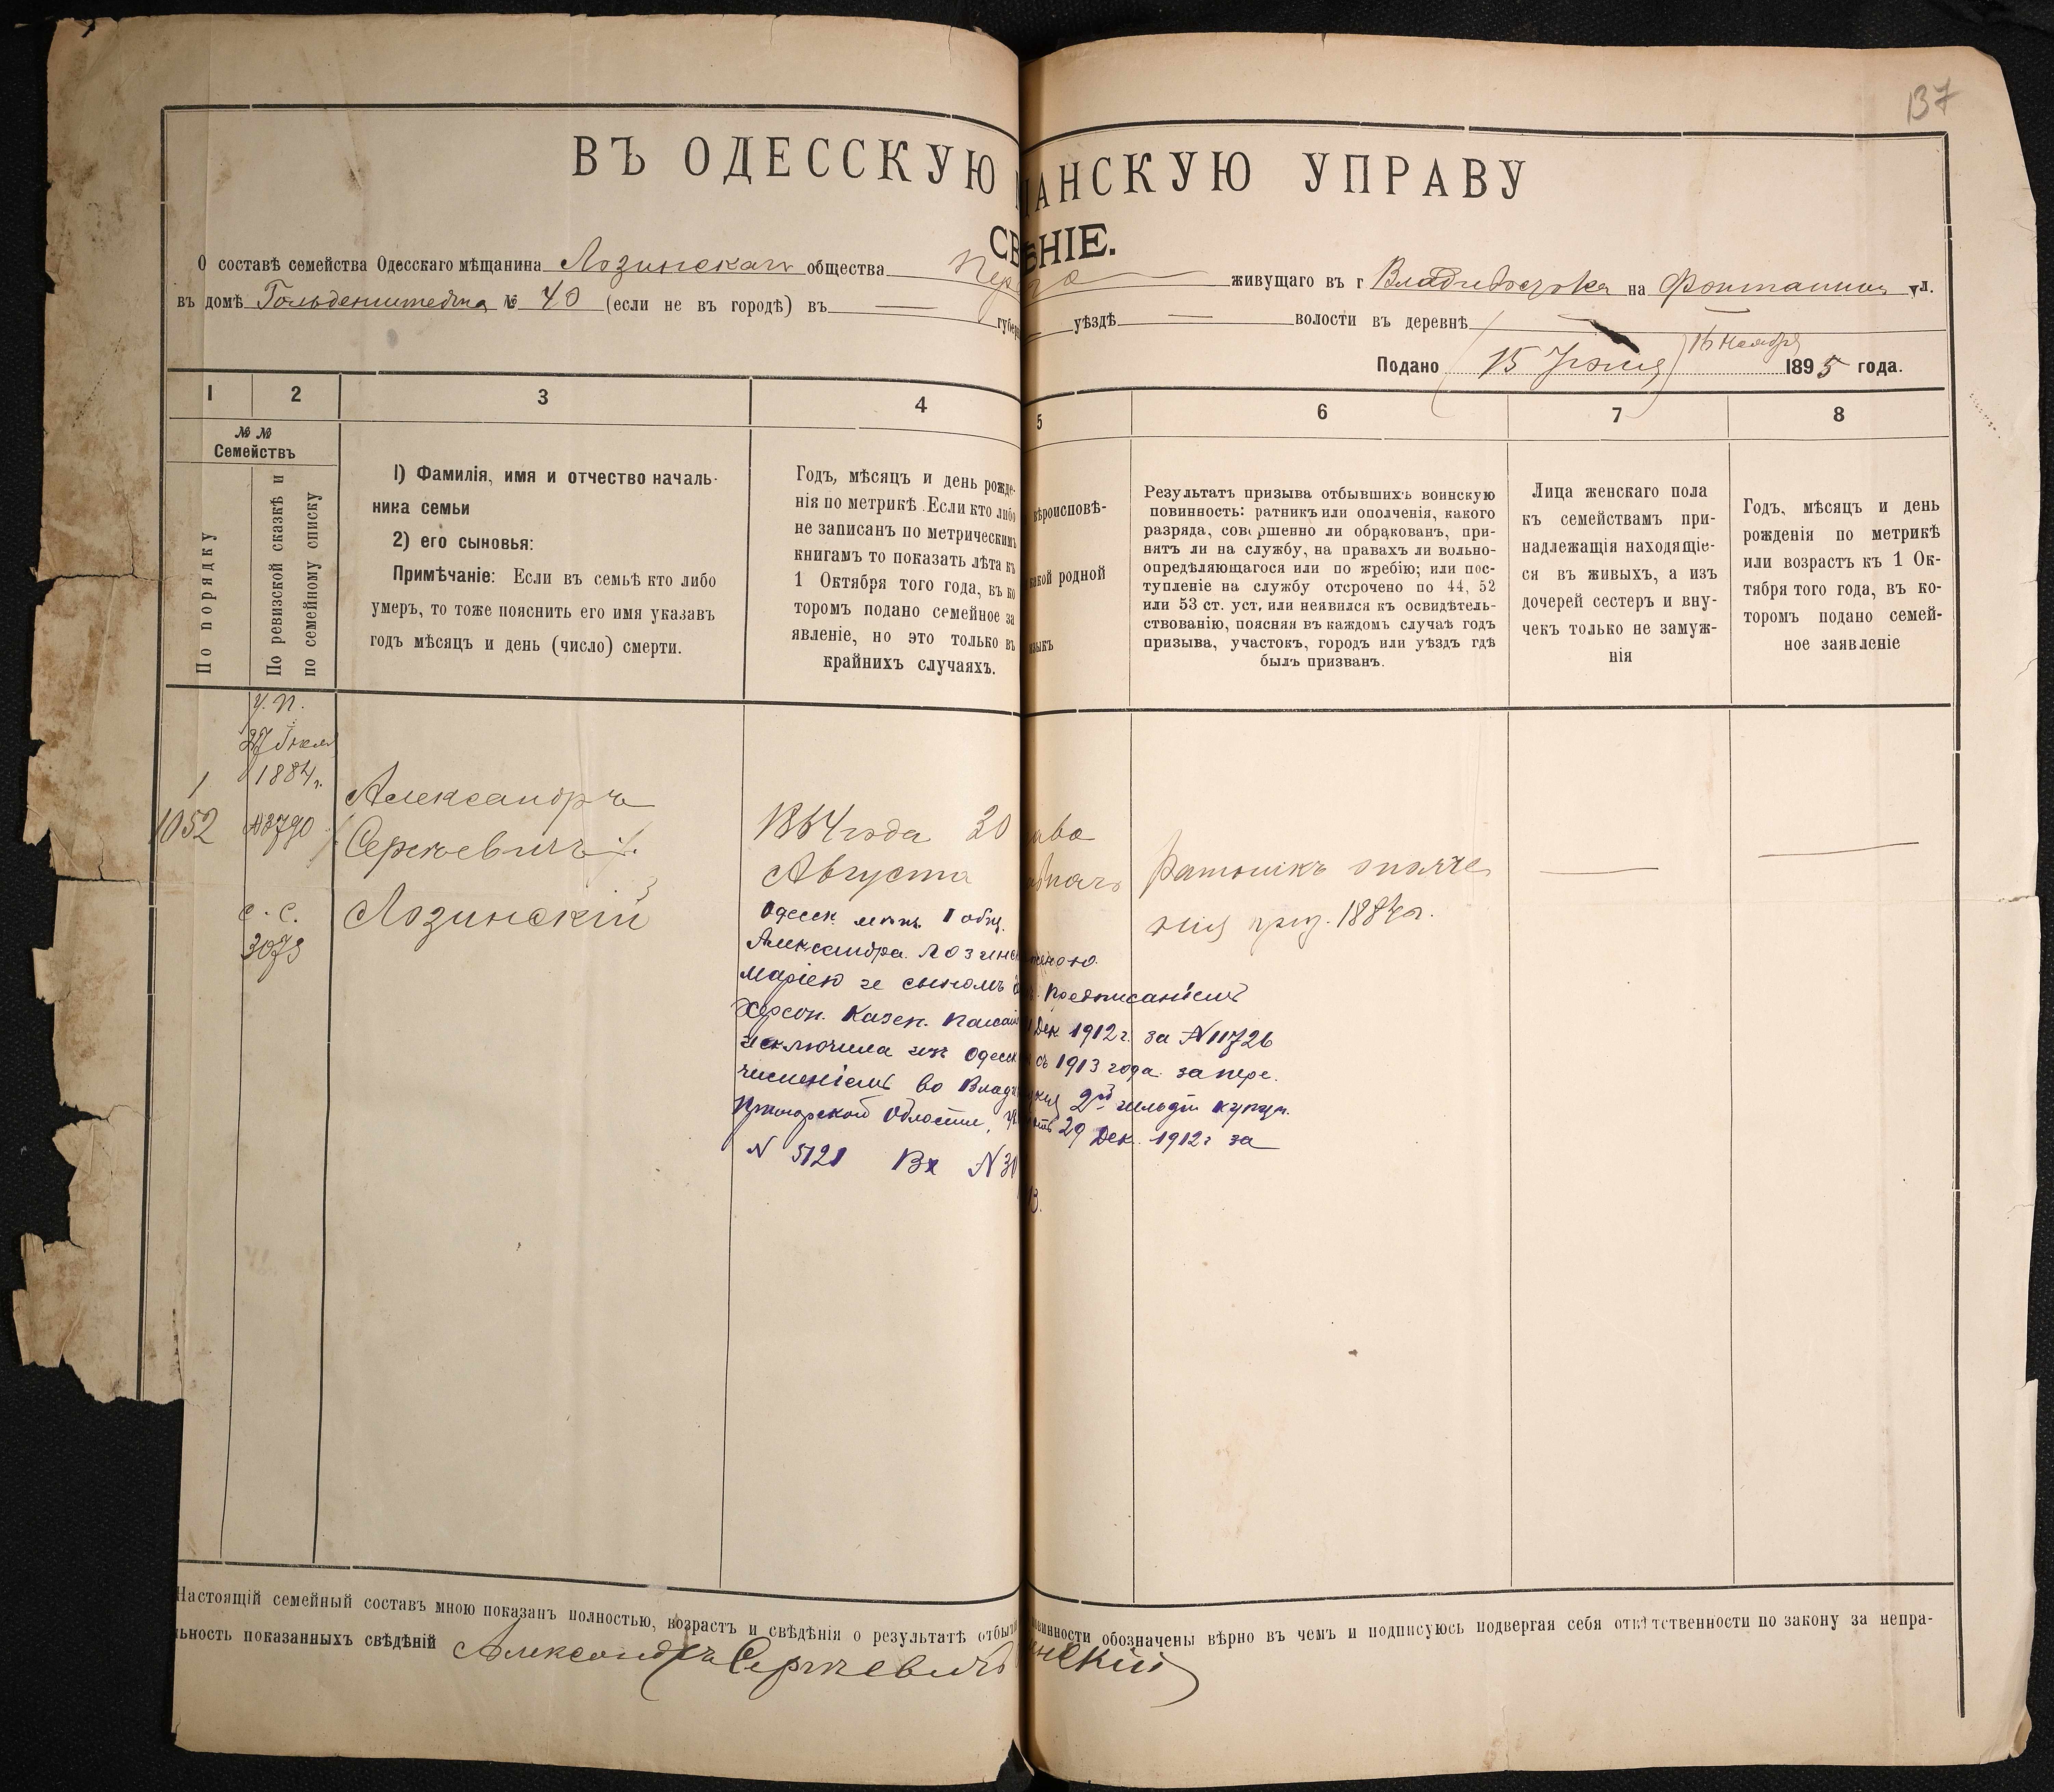 137
ВЪ ОДЕССКУЮ АНСКУЮ УПРАВУ
СВ НІЕ.
О составѣ семейства Одесскаго мѣщанина Лозинскаго общества живущаго въ г Владивостока на ул.
въ домѣ Гольденштейна № 40 (если не въ городѣ) въ — губер уѣздѣ — волости въ деревнѣ —
Подано (15 Іюля) 16 Ноября 1895 года.
1 2 3 4 5 6 7 8
№ №
Семействъ
По порядку
По ревизской сказкѣ и
по семейному списку
1) Фамилія, имя и отчество началь-
ника семьи
2) его сыновья:
Примѣчаніе: Если въ семьѣ кто либо
умеръ, то тоже пояснить его имя указавъ
годъ мѣсяцъ и день (число) смерти.
Годъ, мѣсяцъ и день рожде-
нія по метрикѣ. Если кто либо
не записанъ по метрическимъ
книгамъ то показать лѣта къ
1 Октября того года, въ ко
торомъ подано семейное за
явленіе, но это только въ
крайнихъ случаяхъ.
вѣроисповѣ-
какой родной
языкъ
Результатъ призыва отбывшихъ воинскую
повинность: ратникъ или ополченія, какого
разряда, совершенно ли обракованъ, при-
нятъ ли на службу, на правахъ ли вольно-
опредѣляющагося или по жребію; или пос-
тупленіе на службу отсрочено по 44, 52
или 53 ст. уст, или неявился къ освидѣтель-
ствованію, поясняя въ каждомъ случаѣ годъ
призыва, участокъ, городъ или уѣздъ гдѣ
былъ призванъ.
Лица женскаго пола
къ семействамъ при-
надлежащія находящіе-
ся въ живыхъ, а изъ
дочерей сестеръ и вну-
чекъ только не замуж-
нія
Годъ, мѣсяцъ и день
рожденія по метрикѣ
или возрастъ къ 1 Ок-
тября того года, въ ко-
торомъ подано семей-
ное заявленіе
1
1052
1884г.
№3790
с. с.
3073
Александръ
Сергѣевичъ
Лозинскій
1864 года 20
Августа
Ратникъ ополче
нія приз. 1884г.
— —
Одесск. мѣщ. I общ.
Александра Лозинск женою
Маріею и сыномъ предписаніемъ
Херсон. Казен. Палат Дек 1912 г. за №11726
исключила изъ Одесск съ 1913 года за пере-
численіемъ во Влади 2й гильдіи купцы.
Приморской Области, 29 Дек. 1912 г за
N 5121 Вх N30
13.
Настоящій семейный составъ мною показанъ полностью, возрастъ и свѣдѣнія о результатѣ отбыт повинности обозначены вѣрно въ чемъ и подписуюсь подвергая себя отвѣтственности по закону за непра-
льность показанныхъ свѣдѣній Александръ Сергѣевичъ нскій